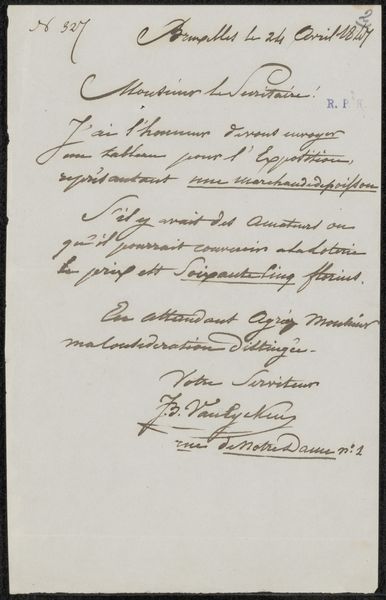 N 327
Bruxelles le 24 Avril 1847
2
Monsieur le Secrétaire!
R. P. K.
J'ai l'honneur de vous envoyer
un tableau pour l'Exposition,
représentant une marchande de poisson
S'il y avait des amateurs ou
qu'il pourrait convenir a la loterie
le prix est Soixante Cinq florins.
En attendant Agréez Monsieur
ma Considération distinguée.
Votre Serviteur
J.B. Van Eycken
rue de Notre Dame no. 2